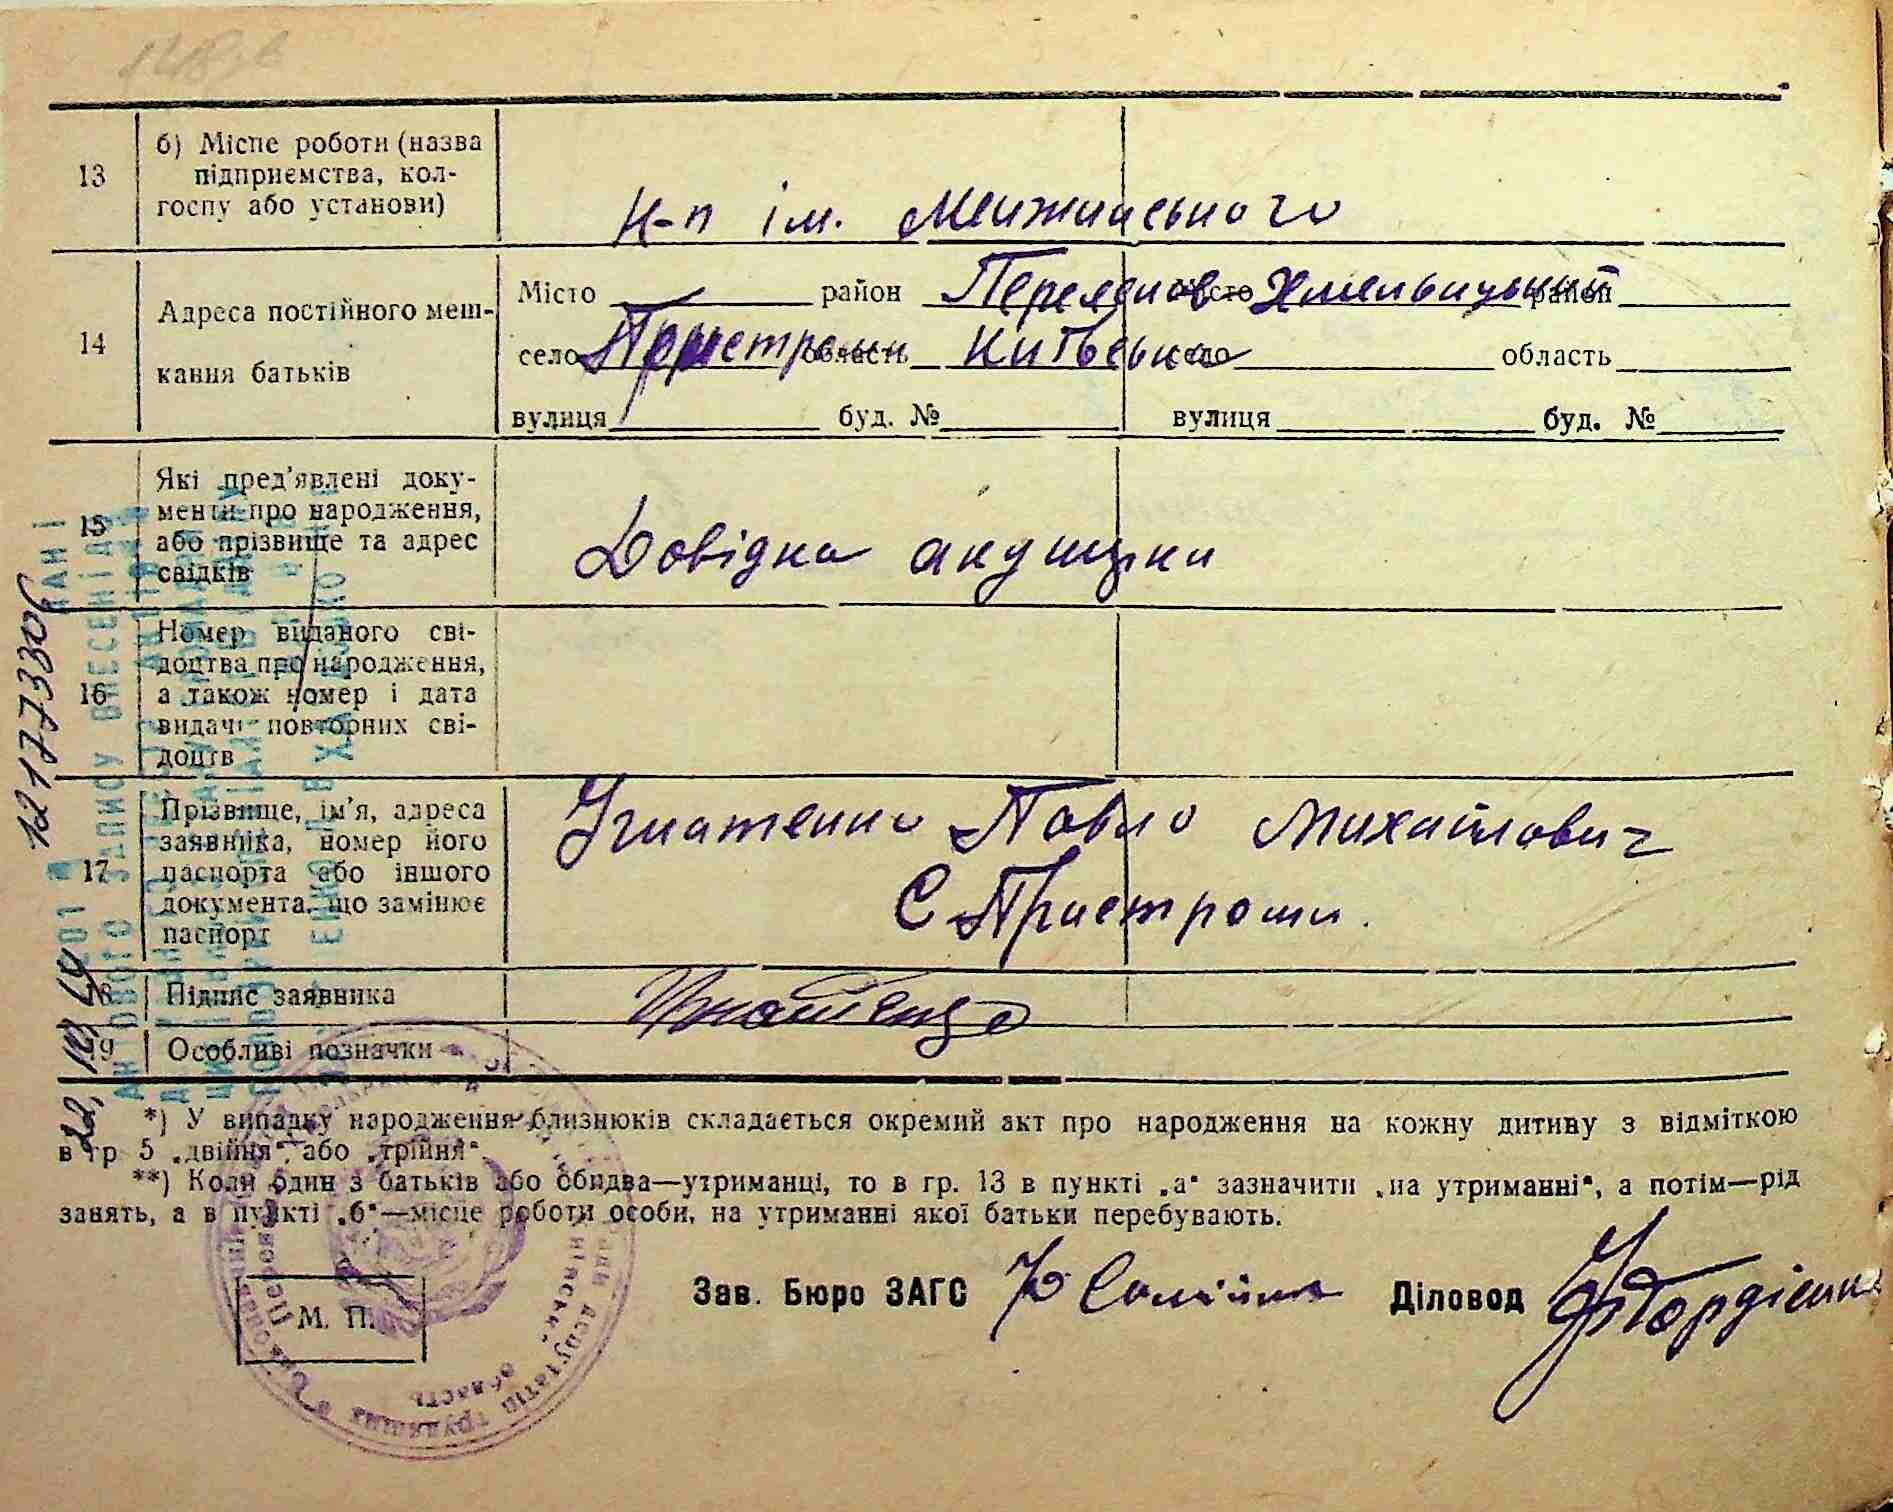 148зв
13
б) Місце роботи (назва
підприємства, кол-
госпу або установи)
к-п ім. Менжинського
14
Адреса постійного меш-
кання батьків
Місто район Переяслов Хмельницький місто район
село Пристроми область Київська село область
вулиця буд. № вулиця буд. №
15
Які пред'явлені доку-
менти про народження,
або прізвище та адрес
свідків
Довідка акушерки
16
Номер виданого сві-
доцтва про народження,
а також номер і дата
видачі повторних сві-
доцтв
17
Прізвище, ім'я, адреса
заявника, номер його
паспорта або іншого
документа, що замінює
паспорт
Ігнатенко Павло Михайлович
С Пристроми.
18
Підпис заявника
Ігнатенко
19
Особливі позначки
*) У випадку народження близнюків складається окремий акт про народження на кожну дитину з відміткою
в гр 5 „двійня“, або „трійня“.
**) Коли один з батьків або обидва—утриманці, то в гр. 13 в пункті „а“ зазначити „на утриманні“, а потім—рід
занять, а в пункті „б“—місце роботи особи, на утриманні якої батьки перебувають.
М. П.
Зав. Бюро ЗАГС
Діловод Гордієнко
12177330
ЗАПИСУ ВНЕСЕНІ ДО
депутатів трудящих
область